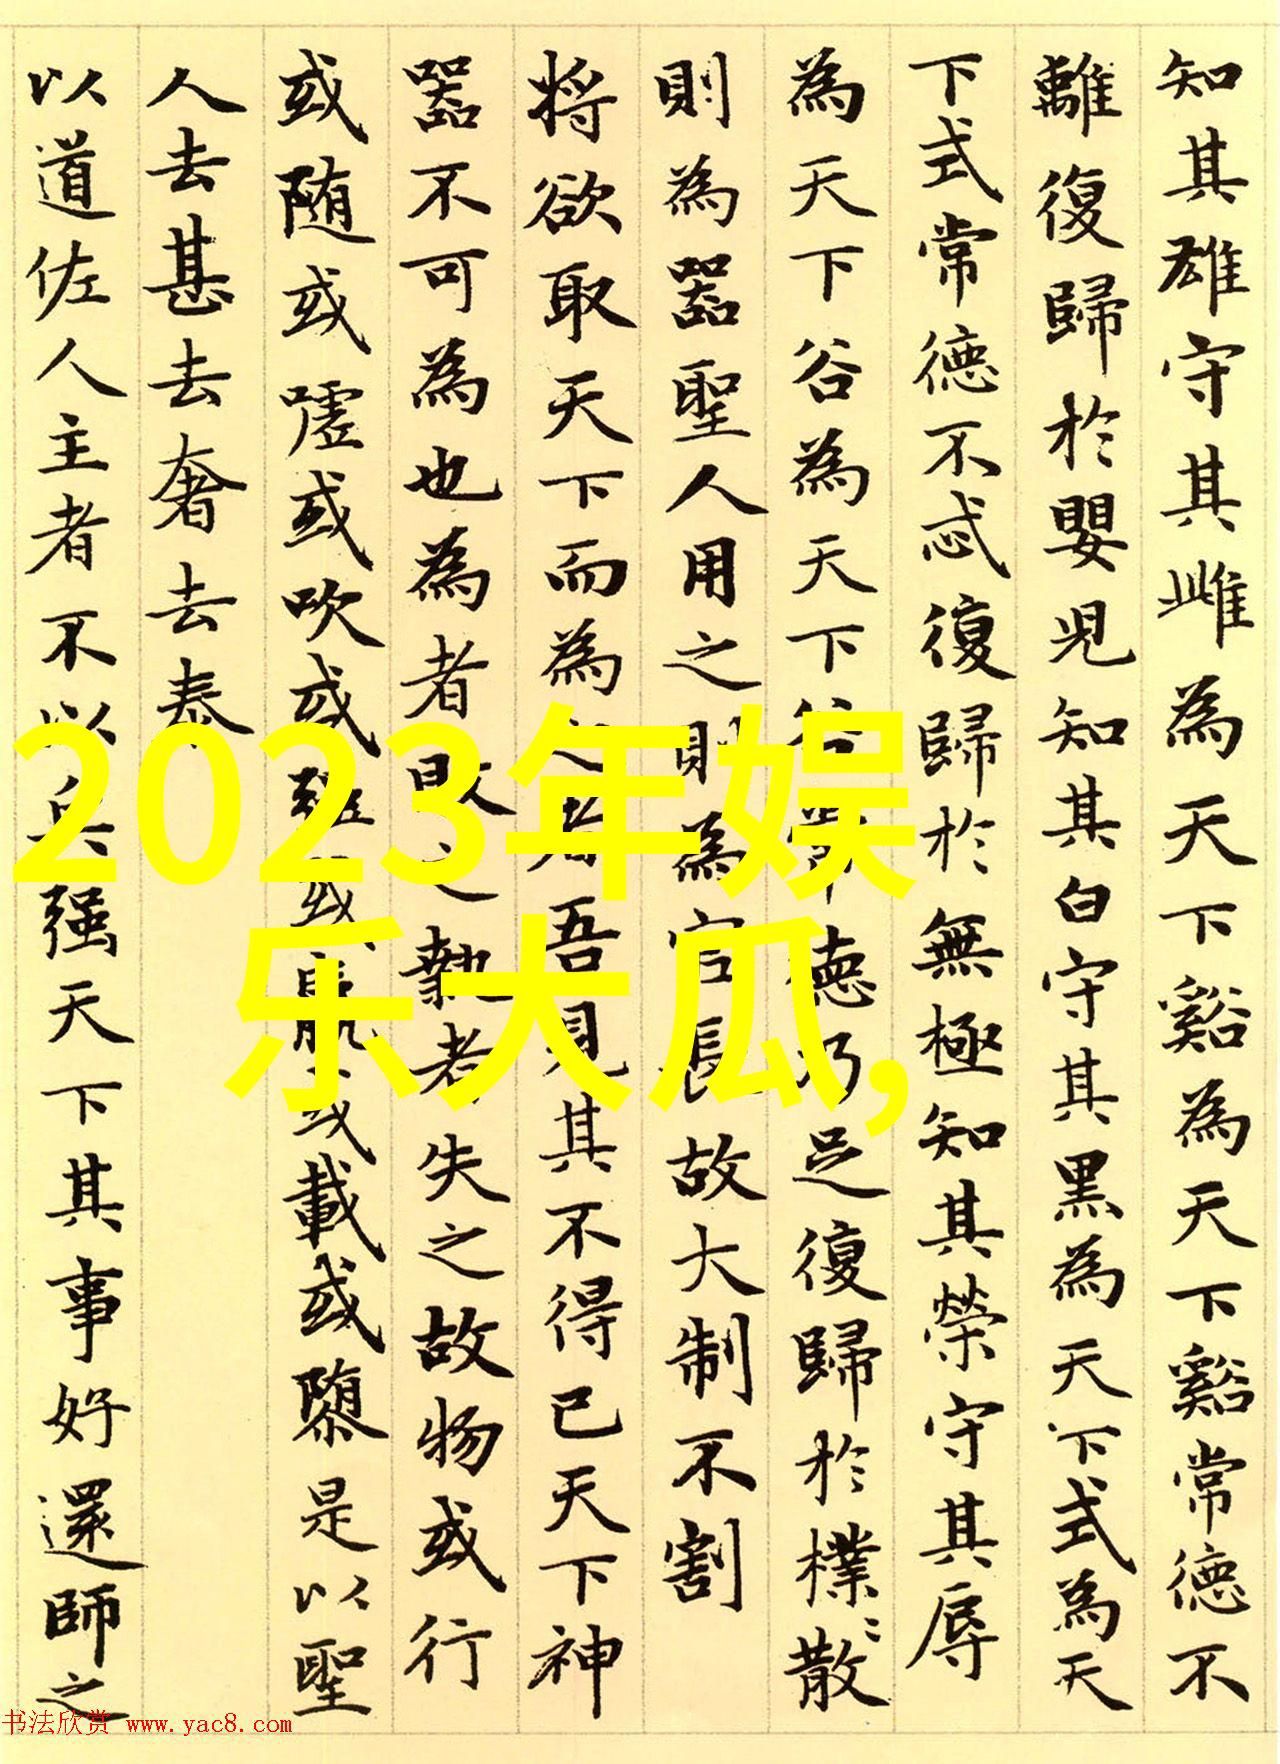 知其雄守其雌為天下谿為天下谿常德不
離復歸於嬰児知其白守其黒為天下式為天
下式常德不忒復歸於無極知其榮守其辱
為天下谷為天下谷常德乃足復歸於樸〻散
則為器聖人用之則為官長故大制不割
将欲取天下而為之者吾見其不得已天下神
器不可為也為者敗之執者失之故物或行
或随或嘘或吹或強或羸或載或隳是以聖
人去甚去奢去泰
以道佐人主者不以兵强天下其事好還師之
2023年娱
乐大瓜,
书法欣赏 www.yac8.com